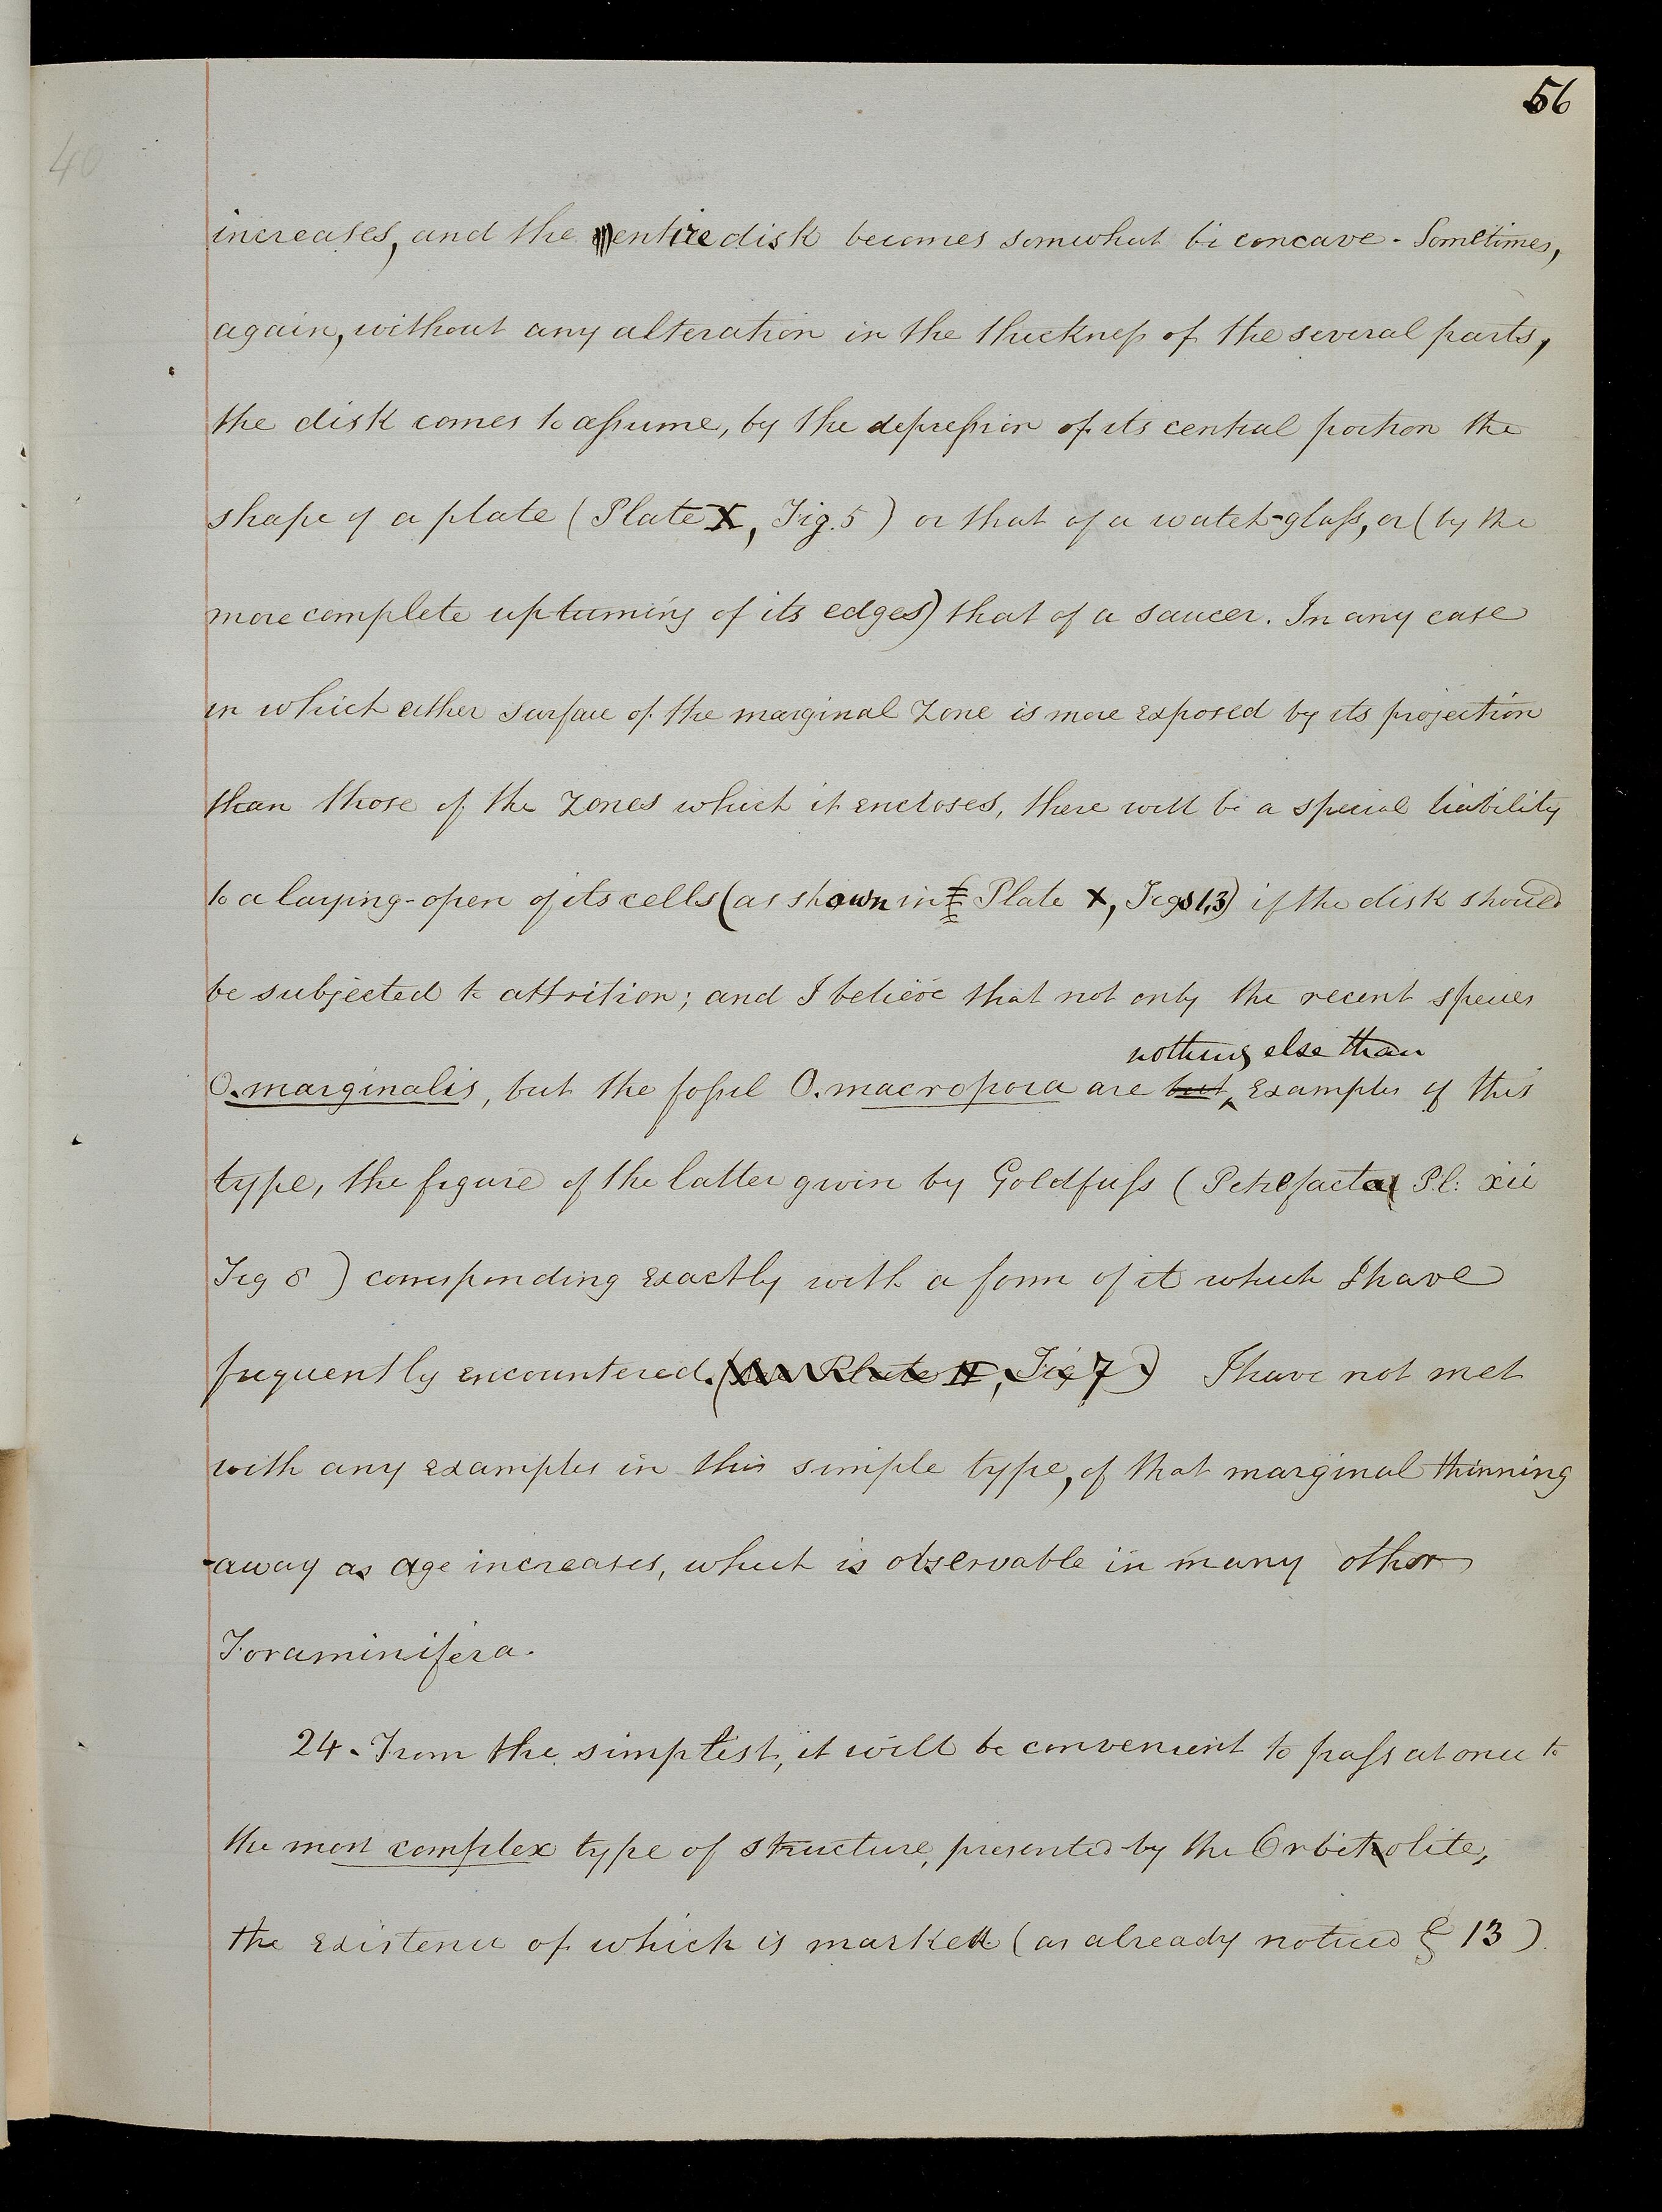 56
40
increases, and the entire disk becomes somwhat bi concave. Sometimes,
again, without any alteration in the thickneſs of the several parts,
the disk comes to aſsume, by the depreſsion of its central portion the
shape of a plate (Plate X, Fig. 5) or that of a watch-glaſs, or (by the
more complete upturning of its edges) that of a saucer. In any case
in which either surface of the marginal zone is more exposed by its projection
than those of the zones which it encloses, there will be a special liability
to a laying-open of its cells (as shown in Plate X, Figs 1,3) if the disk should
be subjected to attrition; and I believe that not only the recent species
nothing else than
O. marginalis, but the foſsil O. macropora are but, examples of this
type, the figure of the latter given by Goldfuſs (Petrefacta Pl: xii
Fig 8) corresponding exactly with a form of it which I have
frequently encountered. (see Plate II, Fig 7.) I have not met
with any examples in this simple type, of that marginal thinning
-away as age increases, which is observable in many other
Foraminifera.
24. From the simplest, it will be convenient to paſs at once to
the most complex type of structure, presented by the Orbitolite,
the existence of which is marked (as already noticed § 13)